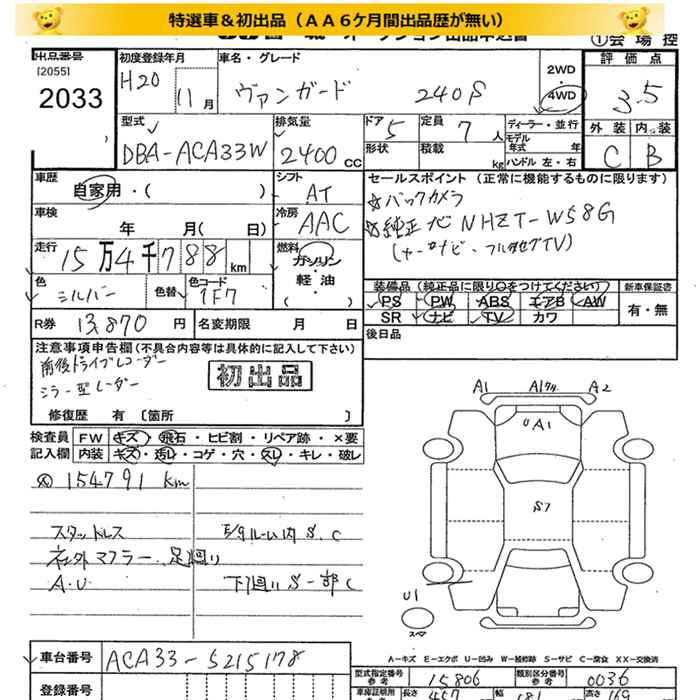 特選車＆初出品（ＡＡ６ケ月間出品歴が無い）
①会場控
出品番号 初度登録年月 車名・グレード 評価点
[2055] H20 11月 ヴァンガード 240S 2WD 4WD 3.5
2033
型式 排気量 ドア 5 定員 7人 ディーラー・並行 外装 内装
DBA-ACA33W 2400cc 形状 積載 kg モデル年式 年式 ハンドル 左・右 C B
車歴 自家用・( ) シフト AT セールスポイント（正常に機能するものに限ります）
☆バックカメラ
車検 年 月( 日) 冷房 AAC ☆純正ナビ NHZT-W58G
走行 15万4千788km 燃料 ガソリン・軽油・( ) (サーロナビ、フルセグTV)
色 シルバー 色替 色コード 1F7 装備品（純正品に限り○をつけてください） 新車保証書
PS PW ABS エアB AW 有・無
SR ナビ TV カワ
R券 13,870円 名変期限 月 日 後日品
注意事項申告欄(不具合内容等は具体的に記入して下さい)
前後ドライブレコーダー
ミラー型レーダー 初出品
修復歴 有〔箇所 〕
検査員 FW キズ・飛石・ヒビ割・リペア跡・×要
記入欄 内装 キズ・汚レ・コゲ・穴・スレ・キレ・破レ
154791 km
スタッドレス S.C
社外マフラー、足廻り
A.U 下廻りS一部C
A1 A1 A2
UA1
S7
U1
スペア
A－キズ E－エクボ U－凹み W－補修跡 S－サビ C－腐食 XX－交換済
車台番号 ACA33-5215178
型式指定番号 参考 15806 類別区分番号 参考 0036
登録番号 車庫証明用 参考 長さ 457 幅 181 高さ 169